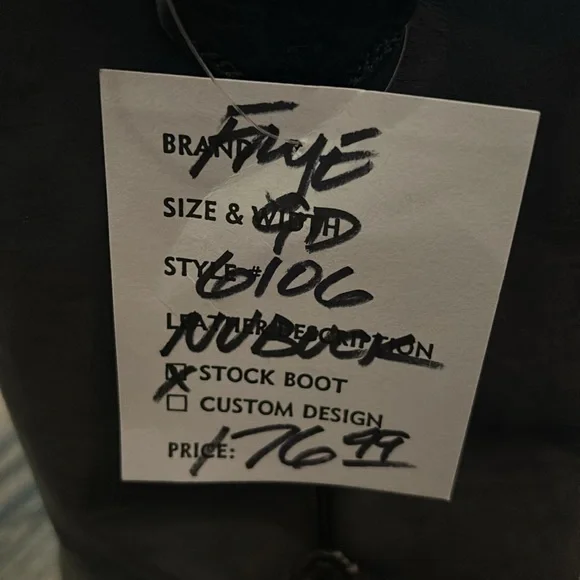 BRAND FRYE
SIZE & WIDTH 9D
STYLE # 6106
LEATHER DESCRIPTION NUBUCK
X STOCK BOOT
CUSTOM DESIGN
PRICE: 176 99